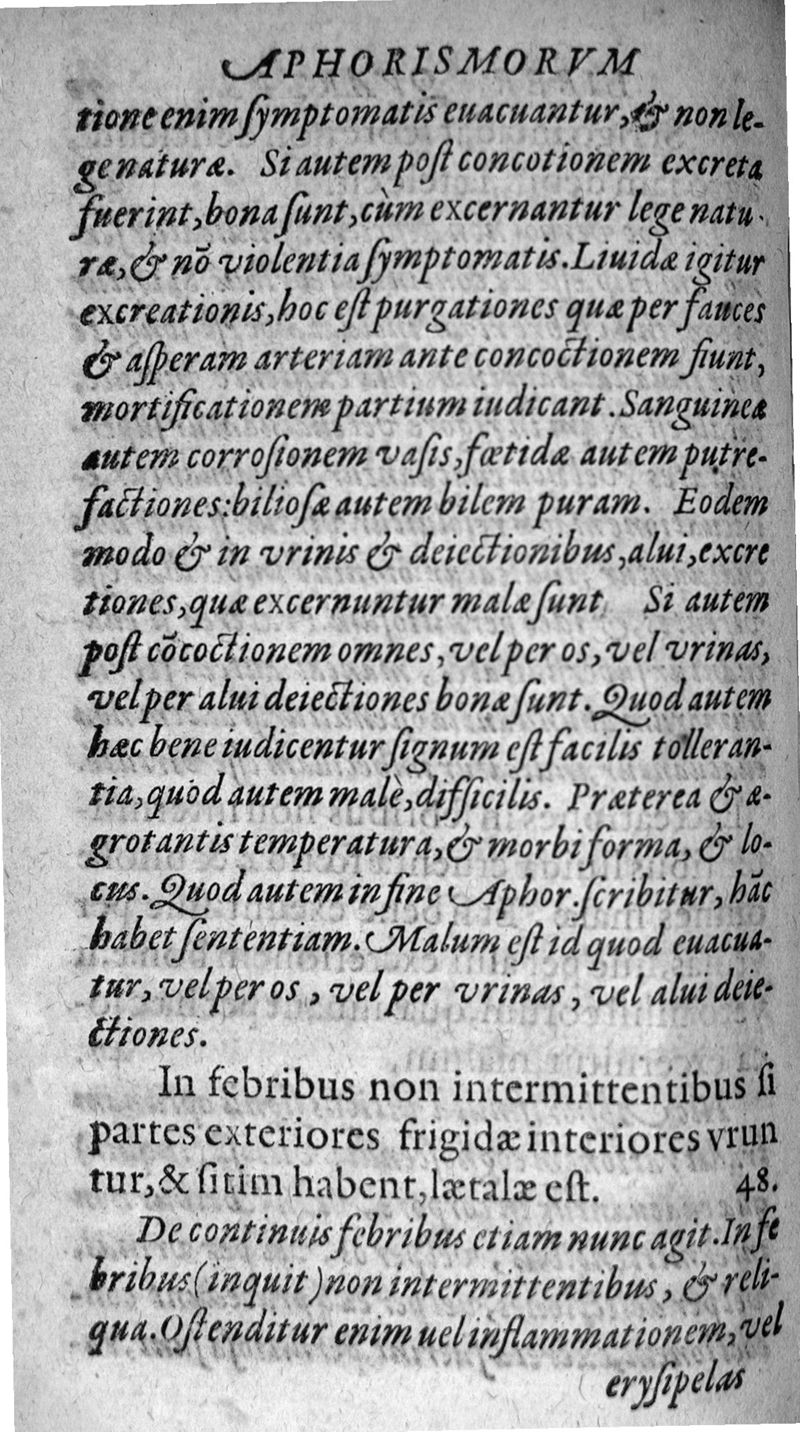 APHORISMORVM
tione enim ſymptomatis euacuantur, & non le-
ge naturæ. Si autem poſt concotionem excreta
fuerint, bona ſunt, cùm excernantur lege natu-
ræ, & nõ violentia ſymptomatis. Liuidæ igitur
excreationis, hoc eſt purgationes quæ per fauces
& aſperam arteriam ante concoctionem fiunt,
mortificationem partium iudicant. Sanguineæ
autem corroſionem vaſis, fœtidæ autem putre-
factiones: bilioſæ autem bilem puram. Eodem
modo & in vrinis & deiectionibus, alui, excre
tiones, quæ excernuntur malæ ſunt Si autem
poſt cõcoctionem omnes, vel per os, vel vrinas,
vel per alui deiectiones bonæ ſunt. Quod autem
hæc bene iudicentur ſignum eſt facilis tolleran-
tia, quòd autem malè, difficilis. Præterea & æ-
grotantis temperatura, & morbi forma, & lo-
cus. Quod autem in fine Aphor. ſcribitur, hãc
habet ſententiam. Malum eſt id quod euacua-
tur, vel per os, vel per vrinas, vel alui deie-
ctiones.
In febribus non intermittentibus ſi
partes exteriores frigidæ interiores vrun
tur, & ſitim habent, lætalæ eſt. 48.
De continuis febribus etiam nunc agit. In fe
bribus (inquit) non intermittentibus, & reli-
qua. Oſtenditur enim uel inflammationem, vel
eryſipelas